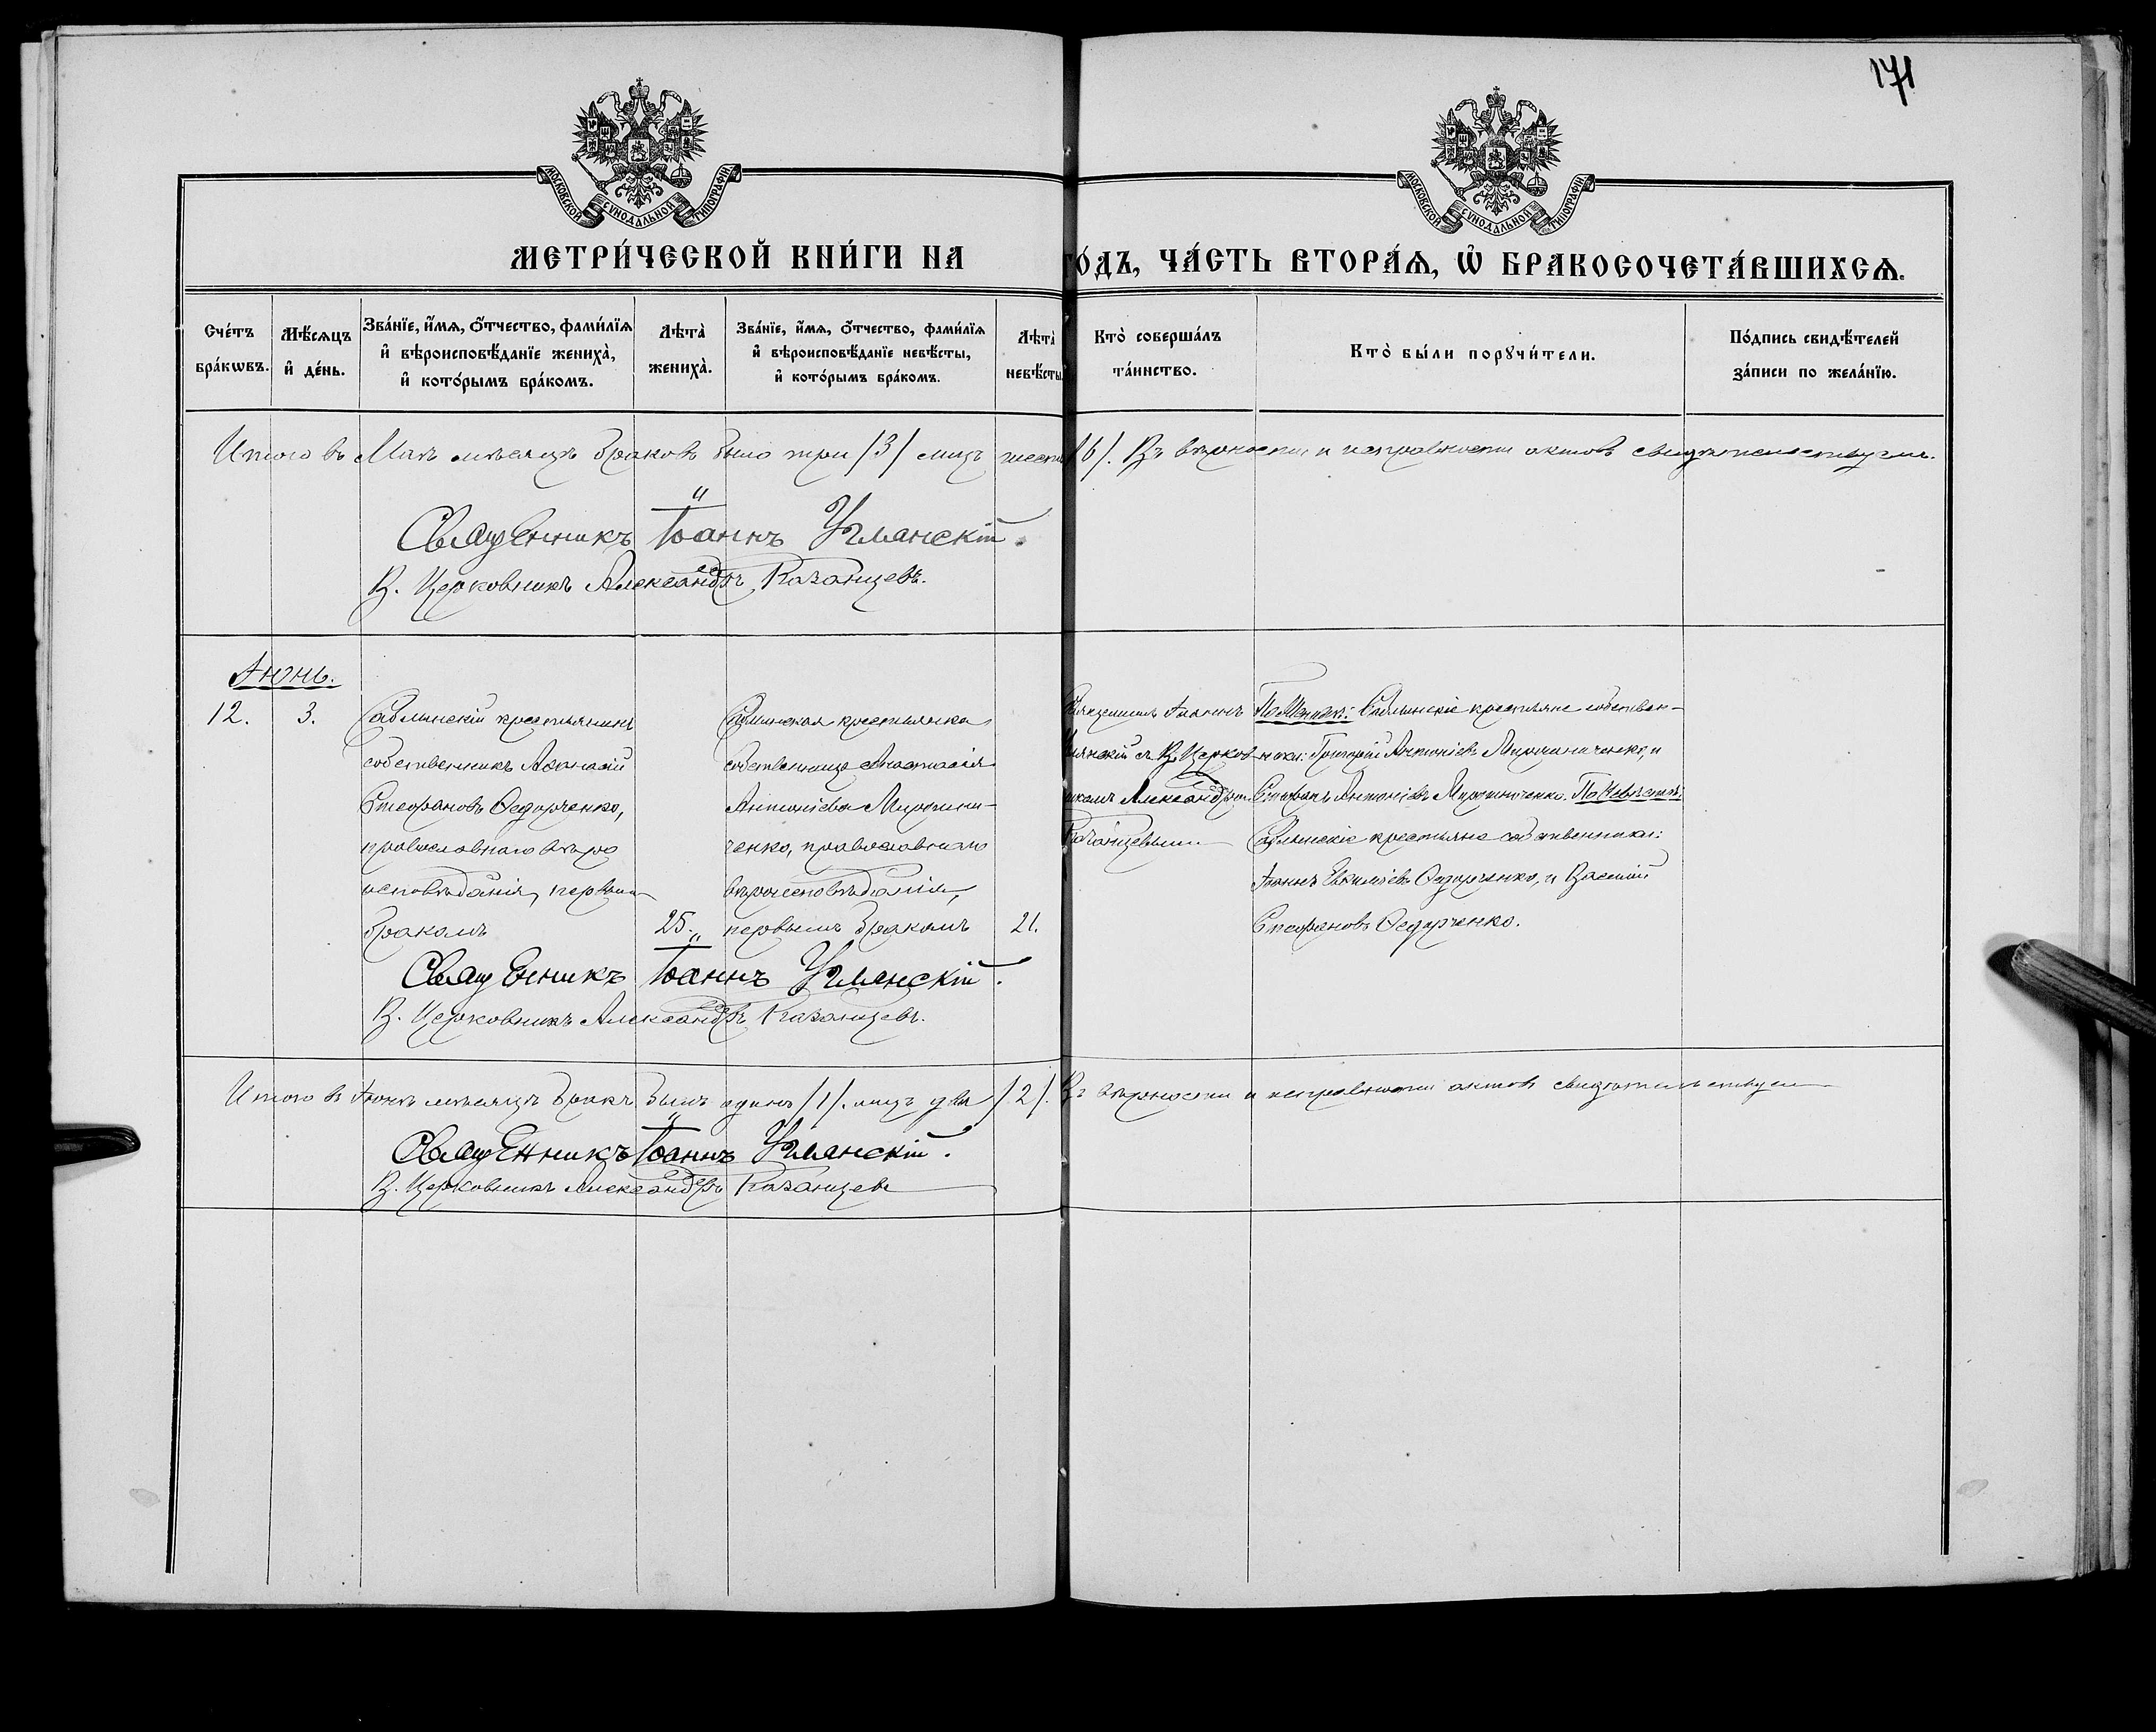 171
МОСКОВСКОЙ СѴНОДАЛЬНОЙ ТИПОГРАФІИ
МОСКОВСКОЙ СѴНОДАЛЬНОЙ ТИПОГРАФІИ
МЕТРИ́ЧЕСКОЙ КНИ́ГИ НА ГО́ДЪ, ЧА́СТЬ ВТОРА́Ѧ, Ѽ БРАКОСОЧЕТА́ВШИХСѦ.
Сче́тъ бра́кѡвъ.
Мѣ́сѧцъ и҆ де́нь.
Зва́нїе, и҆́мѧ, ѻ҆́тчество, фами́лїѧ
и҆ вѣроисповѣ́данїе жениха̀,
и҆ кото́рымъ бра́комъ.
Лѣта̀ жениха̀.
Зва́нїе, и҆́мѧ, ѻ҆́тчество, фами́лїѧ
и҆ вѣроисповѣ́данїе невѣ́сты,
и҆ кото́рымъ бра́комъ.
Лѣта̀ невѣ́сты
Кто̀ соверша́лъ та́инство.
Кто̀ бы́ли порꙋчи́тели.
По́дпись свидѣ́телей за́писи по жела́нїю.
Итого въ Маѣ мѣсяцѣ браковъ было три /3/ лицъ шесть /6/. Въ вѣрности и исправности актовъ свидѣтельствуемъ.
Священникъ Іоаннъ Углянскій.
В. Церковникъ Александръ Казанцевъ.
Іюнь.
12. 3.
Саблинскій крестьянинъ
собственникъ Аѳанасій
Стефановъ Ѳедорченко,
православнаго вѣро
исповѣданія, первымъ
бракомъ
25.
Саблинская крестьянка
собственница Анастасія
Антоніева Мирошни-
ченко, православнаго
вѣроисповѣданія,
первымъ бракомъ
21.
Священникъ Іоаннъ
Углянскій съ В. Церков-
никомъ Александромъ
Казанцевымъ
По Женихѣ: Саблинскіе крестьяне собствен-
ники: Григорій Антоніевъ Мирошниченко, и
Стефанъ Антоніевъ Мирошниченко. По Невѣстѣ:
Саблинскіе крестьяне собственники:
Іоаннъ Ѳедорченко, и Василій
Стефановъ Ѳедорченко.
Священникъ Іоаннъ Углянскій.
В. Церковникъ Александръ Казанцевъ.
Итого въ Іюнѣ мѣсяцѣ бракъ былъ одинъ /1/. лицъ два /2/. Въ вѣрности и исправности актовъ свидѣтельствуемъ
Священникъ Іоаннъ Углянскій.
В. Церковникъ Александръ Казанцевъ